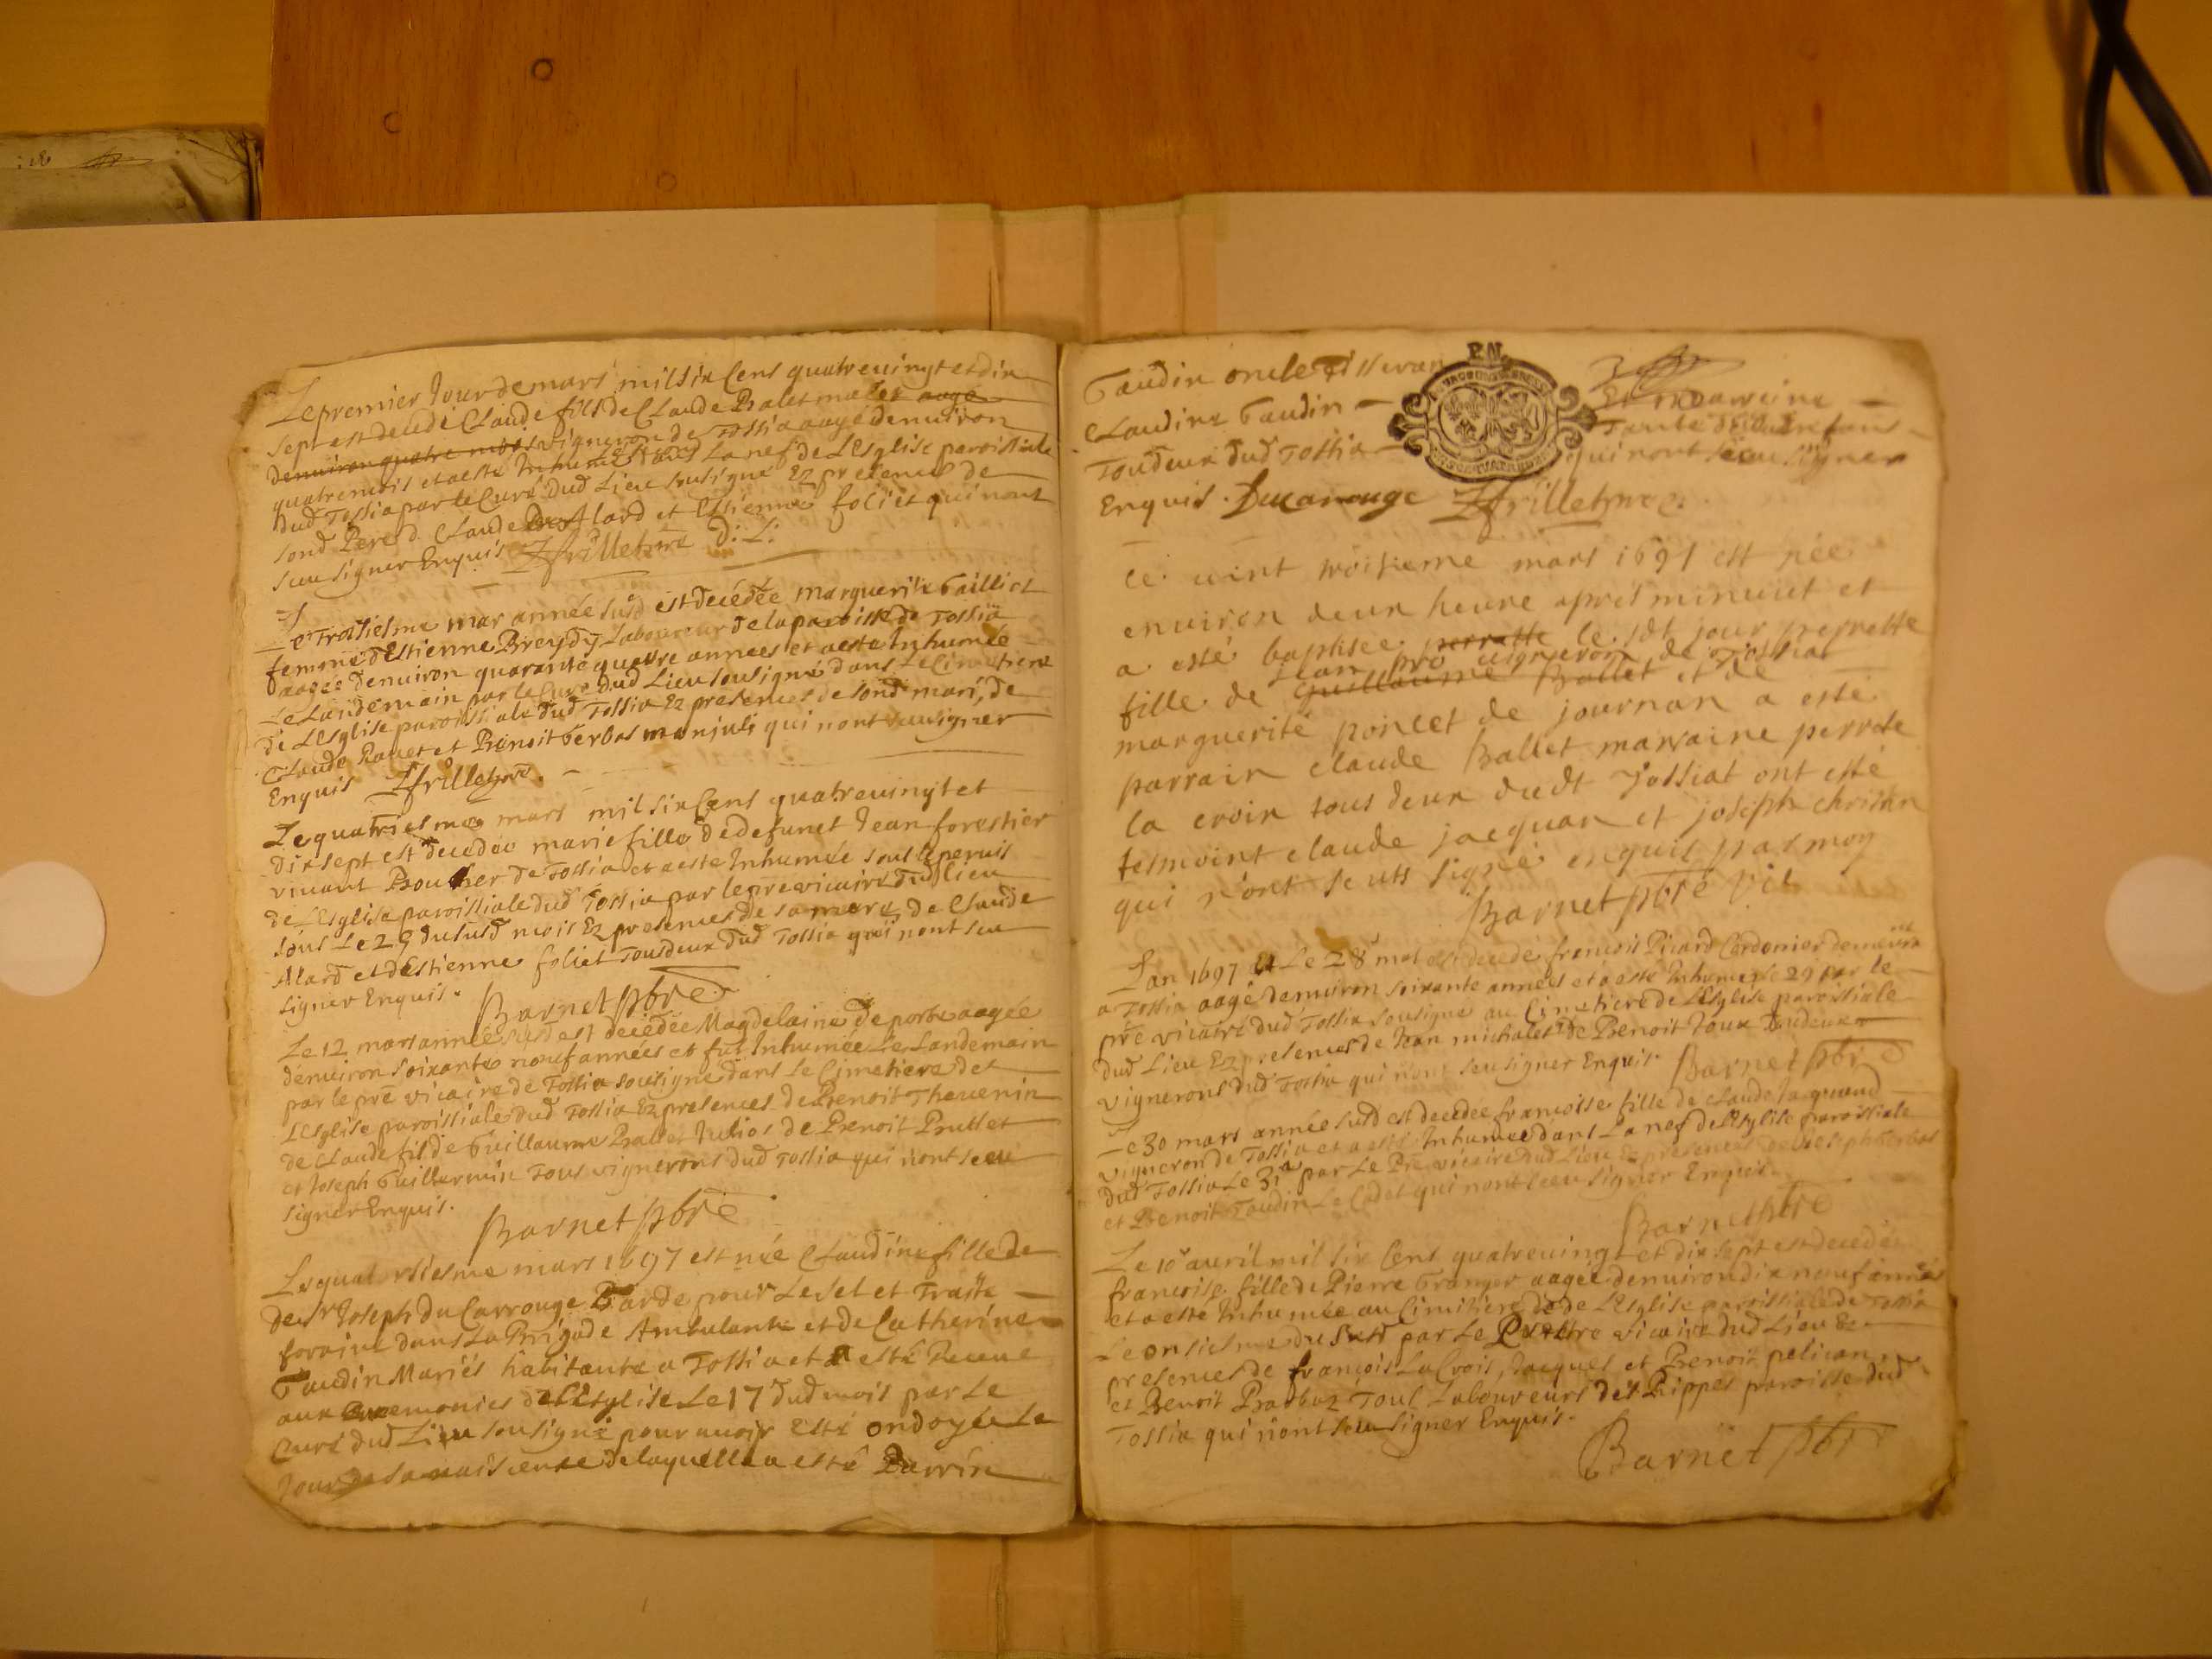 Le premier Jour de mars mil six Cens quatrevingt et dix
sept est decedé Claude fils de Claude Balet maler aagé
denuiron quatre mois vigneron de Tossia aagé denuiron
quatre mois et a esté Inhumé dans La nef de L'Esglise paroissiale
dud Tossia par le Curé dud Lieu sousigné Ez presences de
sond Pere d. Claude Allard et Estienne foliet qui nont
sceu signer Enquis ffrillet pre D: L:
Le Troisiesme mar année susd est decédée marguerite Gailliot
femme d'Estienne Breydy Laboureur de la paroisse de Tossia
aagée denuiron quarante quatre années et a esté Inhumée
Le Landemain par le Curé dud Lieu sousigné dans Le Cimetiere
de L'Esglise paroissiale dud Tossia Ez presences de sond mari, de
Claude Ravet et Benoit Gerbas manjuli qui nont sceu signer
Enquis ffrillet pre.
Le quatriesme mars mil six Cens quatrevingt et
dix sept est decedée marie fille de defunct Jean forestier
vivant Boucher de Tossia et a esté Inhumée sous le pervis
de L'Esglise paroissiale dud Tossia par le pre vicaire dud lieu
sous Le 29 du susd mois Ez presences de sa mere, de Claude
Alard et d'Estienne foliet Toudeux dud Tossia qui nont sceu
signer Enquis. Barnet pbre
Le 12 mars année susd est decedée Magdelaine de porte aagée
denuiron soixante nouf années et fut Inhumée Le Landemain
par le pre vicaire de Tossia sousigné dans le Cimetiere de
L'Esglise paroissiale dud Tossia Ez presences de Benoit Thevenin
de Claude fils de Guillaume Ballet Julios de Benoit Brullet
et Joseph Guillermin Tous vignerons dud Tossia qui nont sceu
signer Enquis. Barnet pbre
Le quatorsiesme mars 1697 est née Claudine fille de
de Sr Joseph du Carrouge Garde pour Le sel et Traitte
foraine dans La Brigade Ambulante et de Catherine
Gaudin Mariés habitants a Tossia et a esté Receue
aux Ceremonies de L'Esglise Le 17 dud mois par Le
Curé dud Lieu sousigné pour auoir Esté ondoyée Le
Jour de sa naissence de laquelle a esté Parrin
Gaudin oncle
Claudine Gaudin Et marreine
Toudeux dud Tossia qui nont sceu signer
Enquis. Ducarrouge ffrillet pre
P.N.
ce vint troisieme mars 1697 est née
environ deux heure aprés minuict et
a esté baptisee perrette le sdt jour perrette
Jean pro vigneron de Tossiat
fille de Guillaume Ballet et de
marguerité poncet de journan a esté
parrain claude Ballet marraine perrete
la croix tous deux dudt Tossiat ont esté
tesmoint claude jacquan et joseph christin
qui n'ont se uts signé enquis par moy
Barnet pbre vic
L'an 1697 et Le 28 mars est decedé francois Picard Cordonier demeurant
a Tossia aagé denuiron soixante années et a esté Inhumé le 29 par le
pre vicaire dud Tossia sousigné au Cimetiere de L'Esglise paroissiale
dud Lieu Ez presences de Jean michalet de Benoit Joux Toudeux
vignerons dud Tossia qui n'ont sceu signer Enquis. Barnet pbre
Le 30 mars année susd est decedée francoise fille de claude Jacquand
vigneron de Tossia et a esté Inhumée dans La nef de L'Esglise paroissiale
dud Tossia Le 31 par Le Pre vicaire dud Lieu Ez presences de Joseph Gerbas
et Benoit Gaudin Le Cadet qui nont sceu signer Enquis.
Barnet pbre
Le 10e auril mil six Cens quatreuingt et dix sept est decedée
francoise fille de Pierre Granger aagée denuiron dix nouf années
et a esté Inhumée au Cimitiere de L'Esglise paroissiale de Tossia
Le onsiesme du susd par Le Prestre vicaire dud Lieu Ez
presences de françois La Crois, Jacques et Benoit pelican
et Benoit Barbaz Tous Laboureurs des Rippes paroisse dud
Tossia qui n'ont sceu signer Enquis.
Barnet pbre